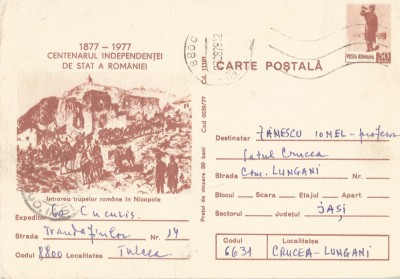 1877 - 1977
CENTENARUL INDEPENDENȚEI
DE STAT A ROMÂNIEI
Intrarea trupelor române în Nicopole
Expeditor Gh. Cucuris
Strada Trandafirilor Nr. 14
8800 Localitatea Tulcea
Cod 0039/77
Prețul de vînzare 90 bani
8800
CARTE POȘTALĂ
POSTA ROMANA
Destinatar ZANESCU IONEL - profesor
Satul Crucea
Strada Com. LUNGANI
Blocul Scara Etajul Apart.
Sectorul Județul IAȘI
Codul Localitatea
6631 CRUCEA - LUNGANI